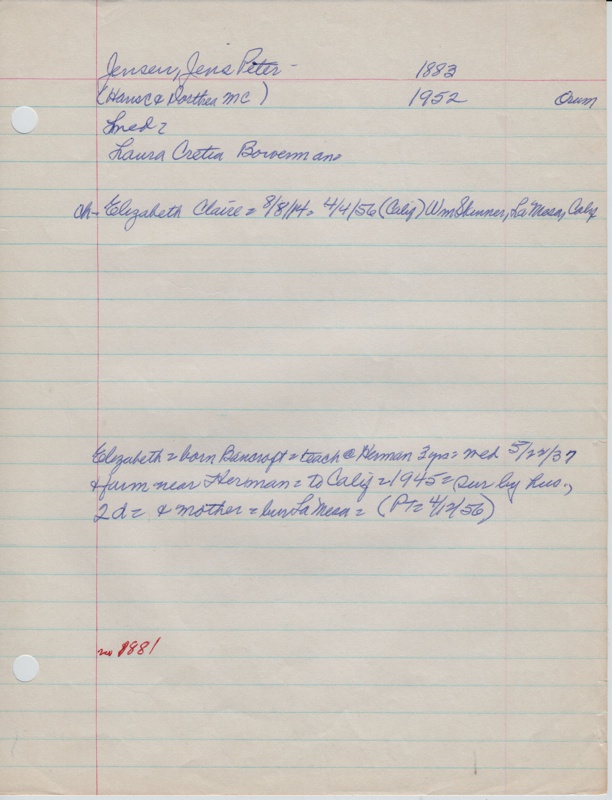 Jensen, Jens Peter - 1883
(Hans C & Dorthea MC) 1952 Orum
1med =
Laura Cretia Bowerman =
ch - Elizabeth Claire = 8/8/14 = 4/4/56 (Calif) Wm Skinner, La Mesa, Calif
Elizabeth = born Bancroft = teach @ Herman 3 yrs = med 5/22/37
& farm near Herman = to Calif = 1945 = sur by hus.,
2 d = & mother = bur La Mesa = (PT = 4/12/56)
no 1881